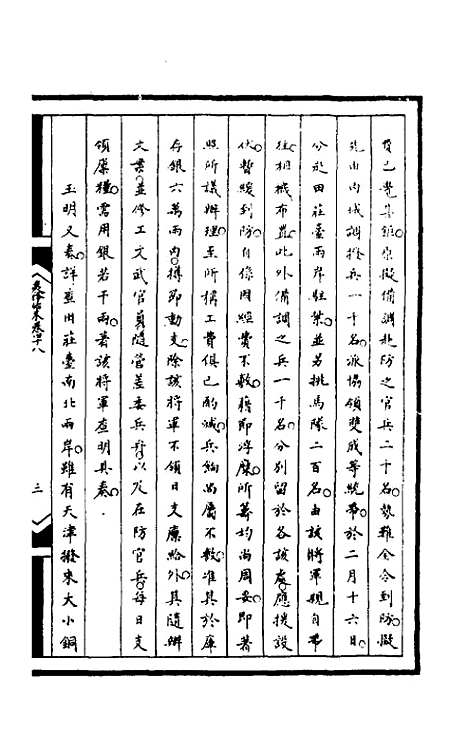 費已覺其鉅原擬備調赴防之官兵二千名勢難全令到防擬
先由內城調撥兵一千名派協領雙成等統帶於二月十六日
分赴田莊臺兩岸駐紮並另挑馬隊二百名由該將軍親自帶
往相機布置此外備調之兵一千名分別留於各該處應撥設
伏暫緩到防自係因經費不敷藉即浮糜所籌均尚周妥即著
照所議辦理至所搆工費俱已酌減兵餉尚屬不敷准其於庫
存銀六萬兩內撙節動支除該將軍不領日支廉給外其隨辦
文案並修工文武官員隨營差委兵弁以及在防官兵每日支
領廉糧需用銀若干兩著該將軍查明具奏
玉明又奏詳查田莊臺南北兩岸雖有天津撥來大小銅
卷四十八
三